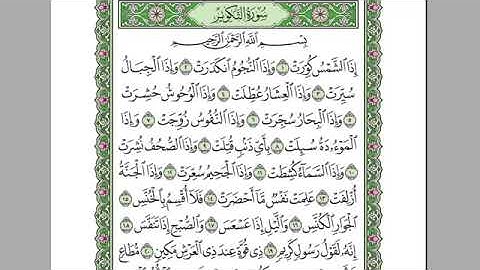 سُورَةُ التَّكْوِيرِ
بِسْمِ ٱللَّهِ ٱلرَّحْمَٰنِ ٱلرَّحِيمِ
إِذَا ٱلشَّمْسُ كُوِّرَتْ ١ وَإِذَا ٱلنُّجُومُ ٱنكَدَرَتْ ٢ وَإِذَا ٱلْجِبَالُ
سُيِّرَتْ ٣ وَإِذَا ٱلْعِشَارُ عُطِّلَتْ ٤ وَإِذَا ٱلْوُحُوشُ حُشِرَتْ
٥ وَإِذَا ٱلْبِحَارُ سُجِّرَتْ ٦ وَإِذَا ٱلنُّفُوسُ زُوِّجَتْ ٧ وَإِذَا
ٱلْمَوْءُۥدَةُ سُئِلَتْ ٨ بِأَيِّ ذَنۢبٍ قُتِلَتْ ٩ وَإِذَا ٱلصُّحُفُ نُشِرَتْ
١٠ وَإِذَا ٱلسَّمَآءُ كُشِطَتْ ١١ وَإِذَا ٱلْجَحِيمُ سُعِّرَتْ ١٢ وَإِذَا ٱلْجَنَّةُ
أُزْلِفَتْ ١٣ عَلِمَتْ نَفْسٌ مَّآ أَحْضَرَتْ ١٤ فَلَآ أُقْسِمُ بِٱلْخُنَّسِ ١٥
ٱلْجَوَارِ ٱلْكُنَّسِ ١٦ وَٱلَّيْلِ إِذَا عَسْعَسَ ١٧ وَٱلصُّبْحِ إِذَا تَنَفَّسَ ١٨
إِنَّهُۥ لَقَوْلُ رَسُولٍ كَرِيمٍ ١٩ ذِى قُوَّةٍ عِندَ ذِى ٱلْعَرْشِ مَكِينٍ ٢٠ مُّطَاعٍ